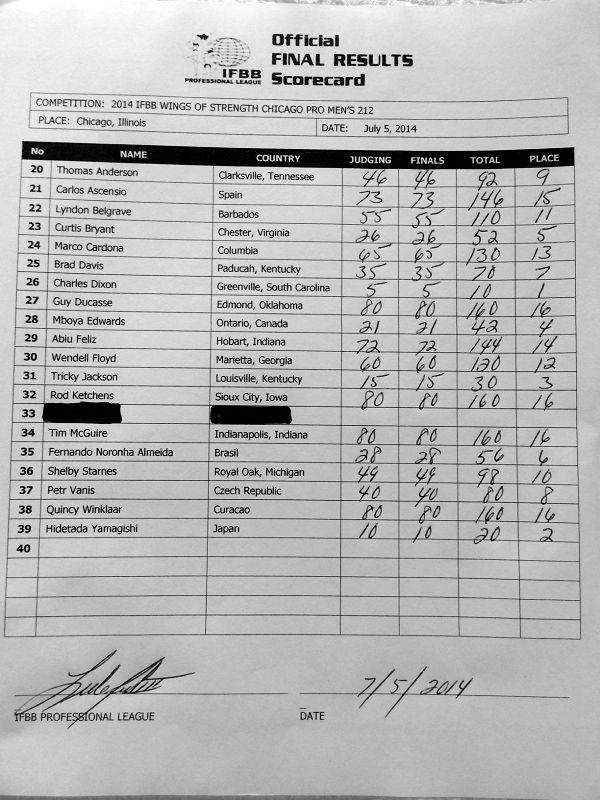 Official
FINAL RESULTS
Scorecard
IFBB
PROFESSIONAL LEAGUE
COMPETITION: 2014 IFBB WINGS OF STRENGTH CHICAGO PRO MEN'S 212
PLACE: Chicago, Illinois DATE: July 5, 2014
No NAME COUNTRY JUDGING FINALS TOTAL PLACE
20 Thomas Anderson Clarksville, Tennessee 46 46 92 9
21 Carlos Ascensio Spain 73 73 146 15
22 Lyndon Belgrave Barbados 55 55 110 11
23 Curtis Bryant Chester, Virginia 26 26 52 5
24 Marco Cardona Columbia 65 65 130 13
25 Brad Davis Paducah, Kentucky 35 35 70 7
26 Charles Dixon Greenville, South Carolina 5 5 10 1
27 Guy Ducasse Edmond, Oklahoma 80 80 160 16
28 Mboya Edwards Ontario, Canada 21 21 42 4
29 Abiu Feliz Hobart, Indiana 72 72 144 14
30 Wendell Floyd Marietta, Georgia 60 60 120 12
31 Tricky Jackson Louisville, Kentucky 15 15 30 3
32 Rod Ketchens Sioux City, Iowa 80 80 160 16
33
34 Tim McGuire Indianapolis, Indiana 80 80 160 16
35 Fernando Noronha Almeida Brasil 28 28 56 6
36 Shelby Starnes Royal Oak, Michigan 49 49 98 10
37 Petr Vanis Czech Republic 40 40 80 8
38 Quincy Winklaar Curacao 80 80 160 16
39 Hidetada Yamagishi Japan 10 10 20 2
40
7/5/2014
IFBB PROFESSIONAL LEAGUE DATE